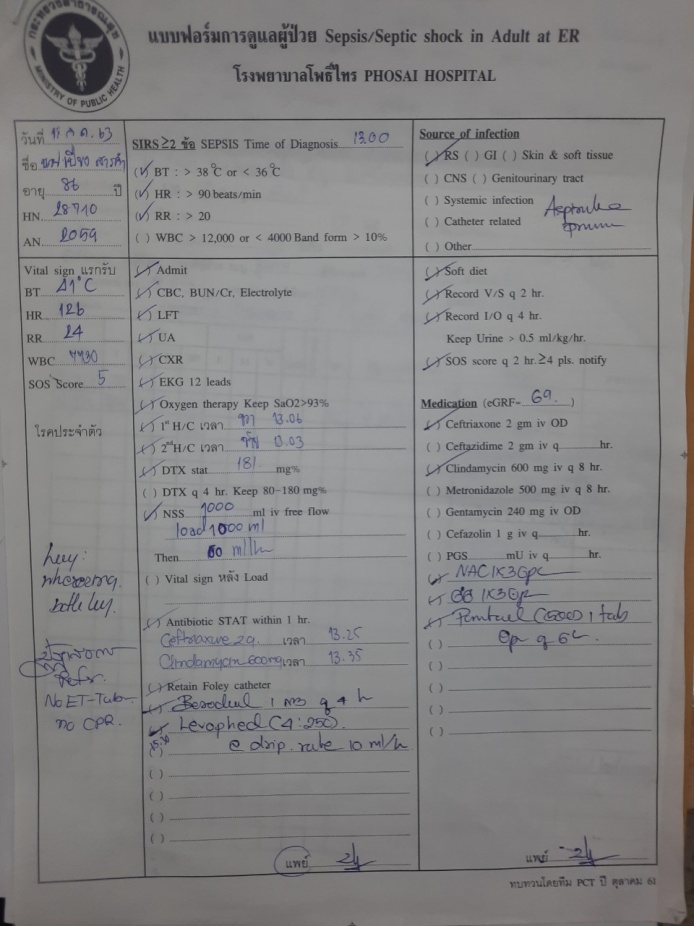 กระทรวงสาธารณสุข
MINISTRY OF PUBLIC HEALTH
แบบฟอร์มการดูแลผู้ป่วย Sepsis/Septic shock in Adult at ER
โรงพยาบาลโพธิ์ไทร PHOSAI HOSPITAL
วันที่ 63
ชื่อ
อายุ 86 ปี
HN. 28710
AN. 2059
SIRS ≥2 ข้อ SEPSIS Time of Diagnosis 1300
(✓) BT : > 38 ℃ or < 36 ℃
(✓) HR : > 90 beats/min
(✓) RR : > 20
( ) WBC > 12,000 or < 4000 Band form > 10%
Source of infection
(✓) RS ( ) GI ( ) Skin & soft tissue
( ) CNS ( ) Genitourinary tract
( ) Systemic infection
( ) Catheter related
( ) Other
Vital sign แรกรับ
BT 41°C
HR 126
RR 24
WBC 7730
SOS Score 5
โรคประจำตัว
No ET-Tube
no CPR.
(✓) Admit
(✓) CBC, BUN/Cr, Electrolyte
(✓) LFT
(✓) UA
(✓) CXR
(✓) EKG 12 leads
(✓) Oxygen therapy Keep SaO2>93%
(✓) 1st H/C เวลา ขวา 13.06
(✓) 2nd H/C เวลา ซ้าย 13.03
(✓) DTX stat 181 mg%
( ) DTX q 4 hr. Keep 80-180 mg%
(✓) NSS 1000 ml iv free flow
load 1000 ml
Then 60 ml/h
( ) Vital sign หลัง Load
(✓) Antibiotic STAT within 1 hr.
Ceftriaxone 2g. เวลา 13.25
Clindamycin 600mg เวลา 13.35
(✓) Retain Foley catheter
✓ Berodual 1 q 4 h
✓ Levophed (4:250)
( ) @ drip rate 10 ml/h
( )
( )
( )
( )
แพทย์
(✓) Soft diet
(✓) Record V/S q 2 hr.
(✓) Record I/O q 4 hr.
Keep Urine > 0.5 ml/kg/hr.
(✓) SOS score q 2 hr.≥4 pls. notify
Medication (eGRF= 69. )
(✓) Ceftriaxone 2 gm iv OD
( ) Ceftazidime 2 gm iv q hr.
(✓) Clindamycin 600 mg iv q 8 hr.
( ) Metronidazole 500 mg iv q 8 hr.
( ) Gentamycin 240 mg iv OD
( ) Cefazolin 1 g iv q hr.
( ) PGS mU iv q hr.
✓ NAC 1x3 pc
✓ 1x3
✓ (500) 1 tab
( )
( )
( )
( )
( )
แพทย์
ทบทวนโดยทีม PCT ปี ตุลาคม 61